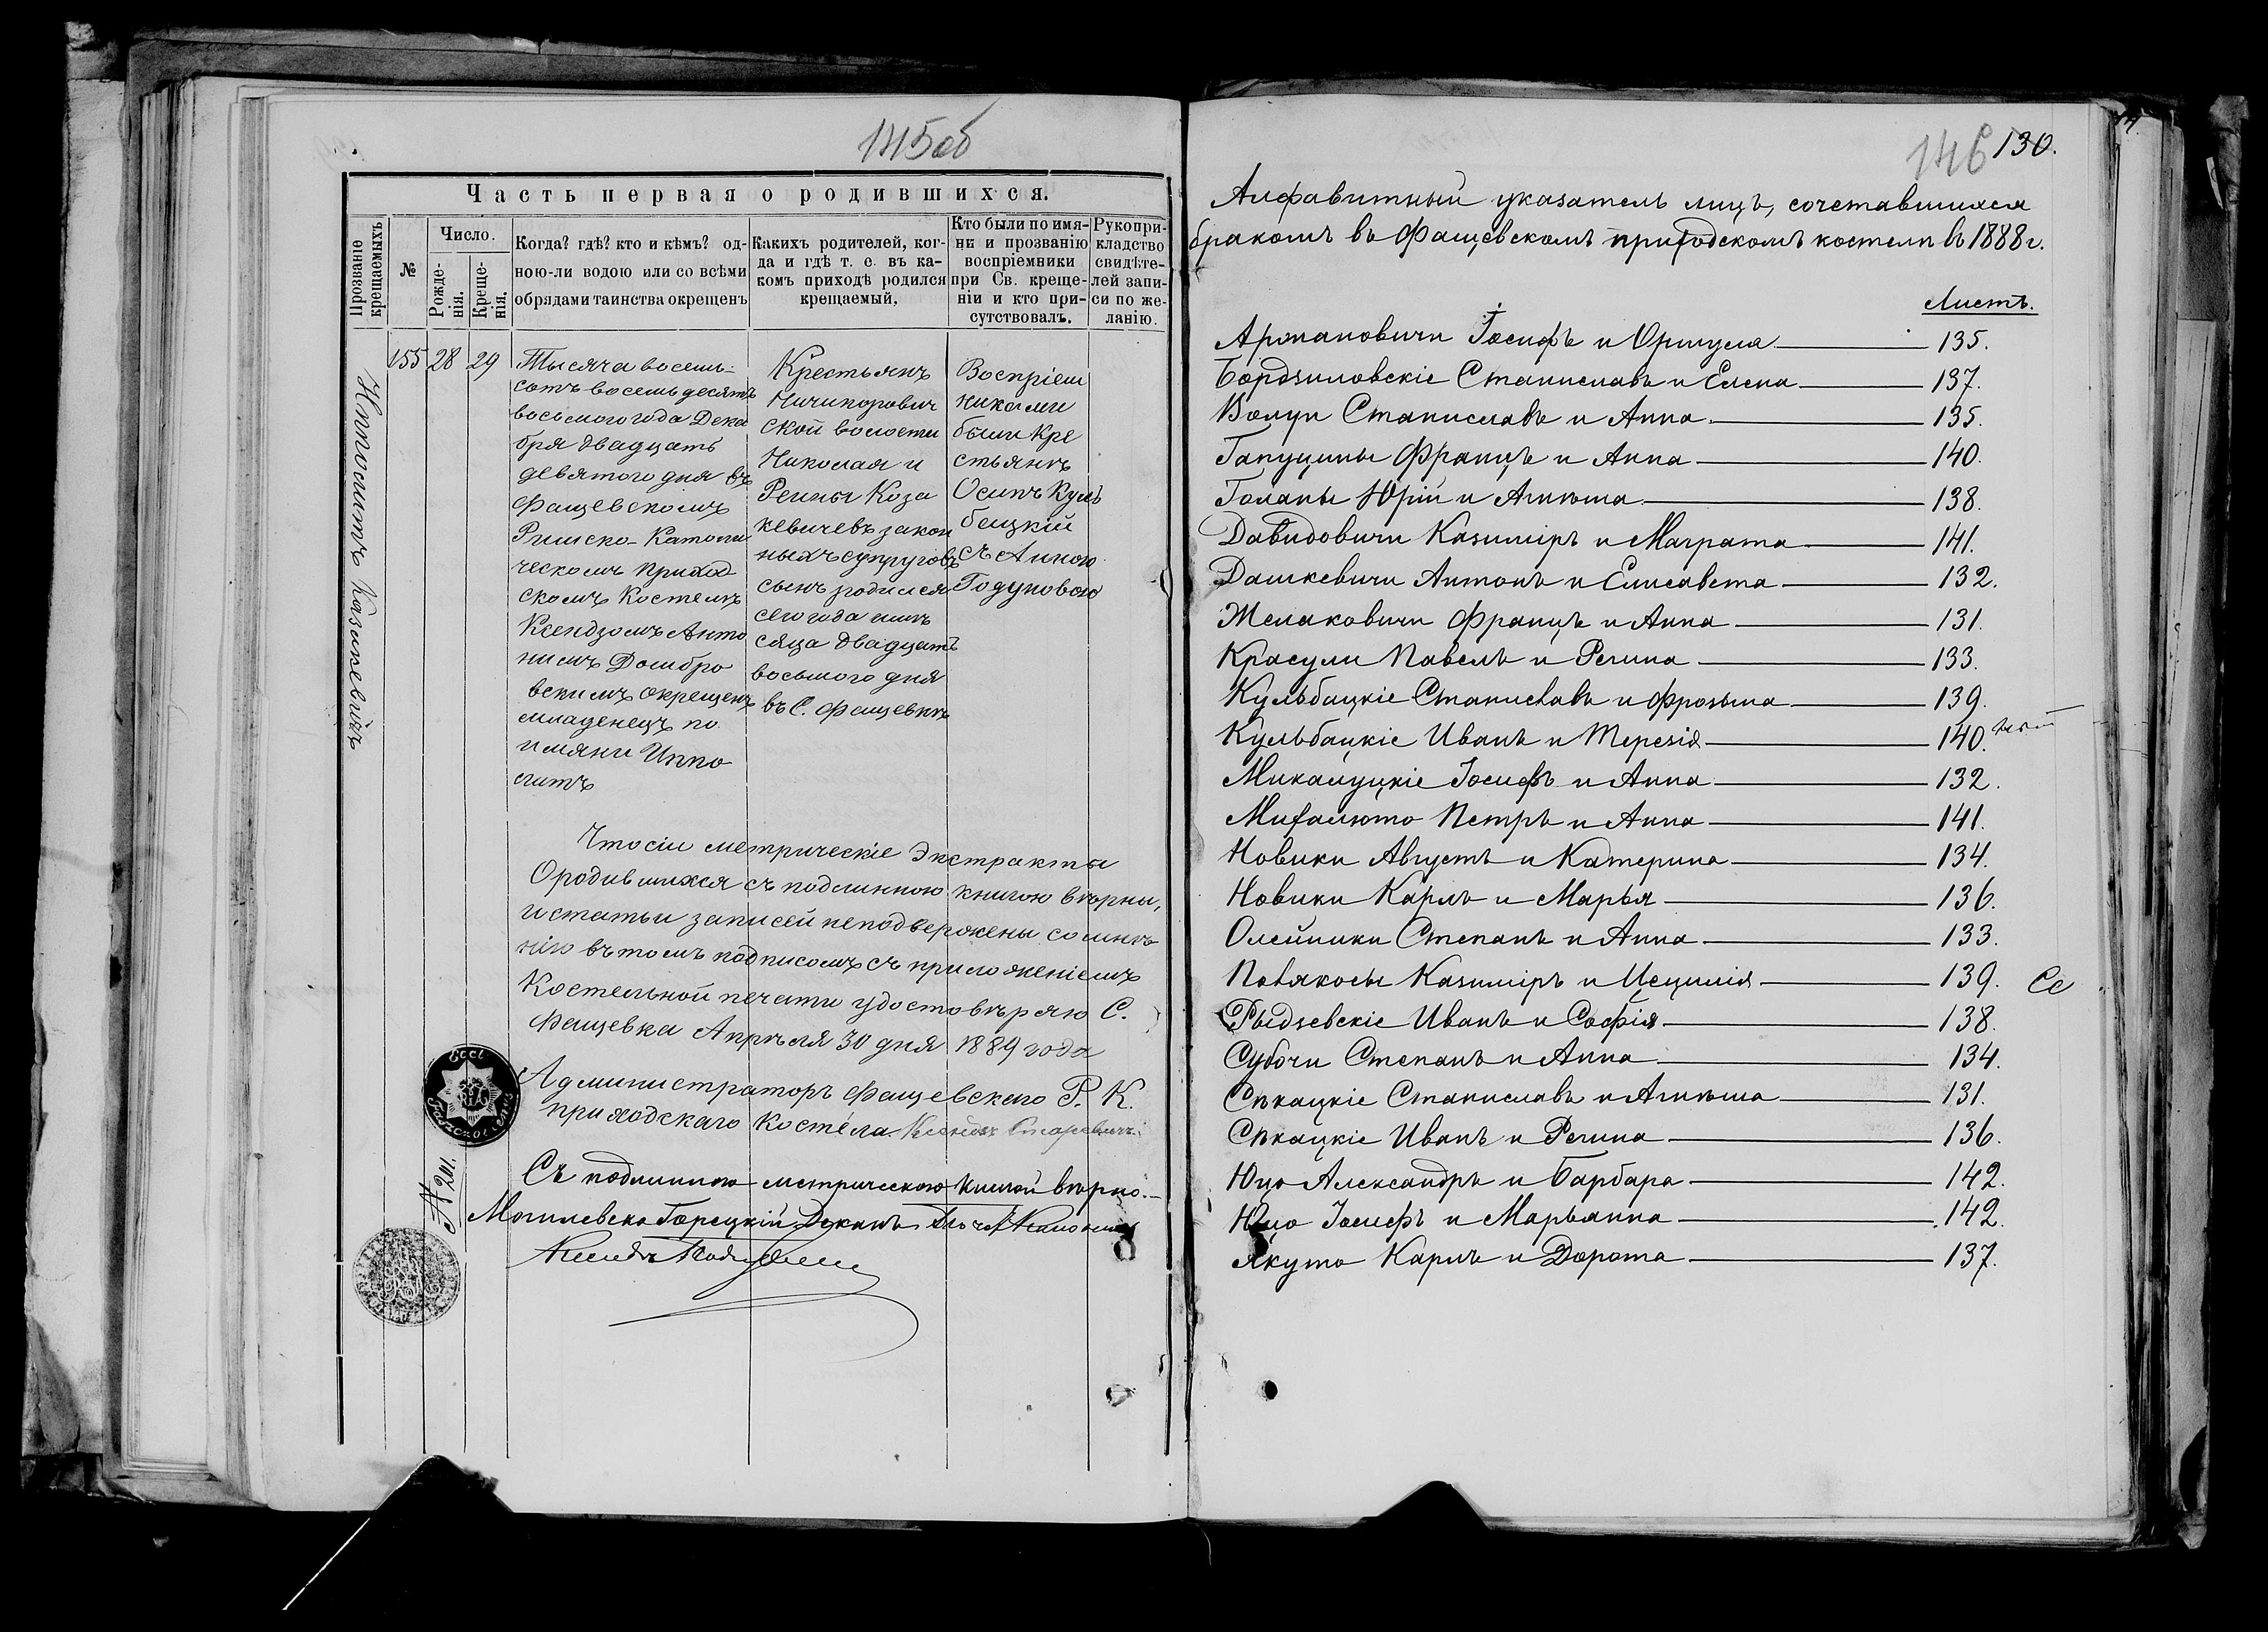 145об
Часть первая о родившихся.
Прозваніе крещаемыхъ
№
Число.
Рожде-
нія.
Креще-
нія.
Когда? гдѣ? кто и кѣмъ? од-
ною-ли водою или со всѣми
обрядами таинства окрещенъ
Какихъ родителей, ког-
да и гдѣ т. е. въ ка-
комъ приходѣ родился
крещаемый.
Кто были по имя-
ни и прозванію
воспріемники
при Св. креще-
ніи и кто при-
сутствовалъ.
Рукопри-
кладство
свидѣте-
лей запи-
си по же-
ланію.
Ипполитъ Казакевичъ
155 28 29
Тысяча восемь-
сотъ восемьдесятъ
восьмого года Дека
бря двадцать
девятого дня въ
Фащевскомъ
Римско-Католи
ческомъ приход
скомъ Костелѣ
Ксендзомъ Анто
ніемъ Домбро
вскимъ окрещенъ
младенецъ по
имяни Иппо
литъ
Крестьянъ
Ничипорович
ской волости
Николая и
Регины Каза
кевичевъ закон
ныхъ супруговъ
сынъ родился
сего года мѣ
сяца двадцать
восьмого дня
въ С. Фащевкѣ
Воспріем
никами
были Кре
стьянѣ
Осипъ Куль
бацкій
съ Анною
Годуновою
Что сіи метрическіе Экстракты
О родившихся съ подлинною книгою вѣрны,
и статьи записей неподвержены сомнѣ
нію въ томъ подписомъ съ приложеніемъ
Костельной печати удостовѣряю С.
Фащевка Апрѣля 30 дня 1889 года
Администраторъ Фащевскаго Р. К.
приходскаго Костёла
№ 201.
Съ подлинною метрическою книгой вѣрно.
Могилевско Горецкій Деканъ
146 130.
Алфавитный указатель лицъ, сочетавшихся
бракомъ въ Фащевскомъ приходскомъ костелѣ въ 1888 г.
Листъ.
Армановичи Іосифъ и Оршуля 135.
Бордзиловскіе Станиславъ и Елена 137.
Волуи Станиславъ и Анна 135.
Гапуцины Францъ и Анна 140.
Голаны Юрій и Агнѣша 138.
Давидовичи Казиміръ и Маграта 141.
Дашкевичи Антонъ и Елисавета 132.
Желаковичи Францъ и Анна 131.
Красули Павелъ и Регина 133.
Кульбацкіе Станиславъ и Фрозына 139.
Кульбацкіе Иванъ и Терезія 140.
Микалуцкіе Іосифъ и Анна 132.
Михалюто Петръ и Анна 141.
Новики Августъ и Катерина 134.
Новики Карлъ и Марья 136.
Олейники Степанъ и Анна 133.
Повякосы Казиміръ и Цецилія 139. Се
Рыдзевскіе Иванъ и Софія 138.
Субочи Степанъ и Анна 134.
Сѣкацкіе Станиславъ и Агнѣша 131.
Сѣкацкіе Иванъ и Регина 136.
Юцо Александръ и Барбара 142.
Юцо Іосифъ и Марьанна 142.
Якуто Карлъ и Дорота 137.